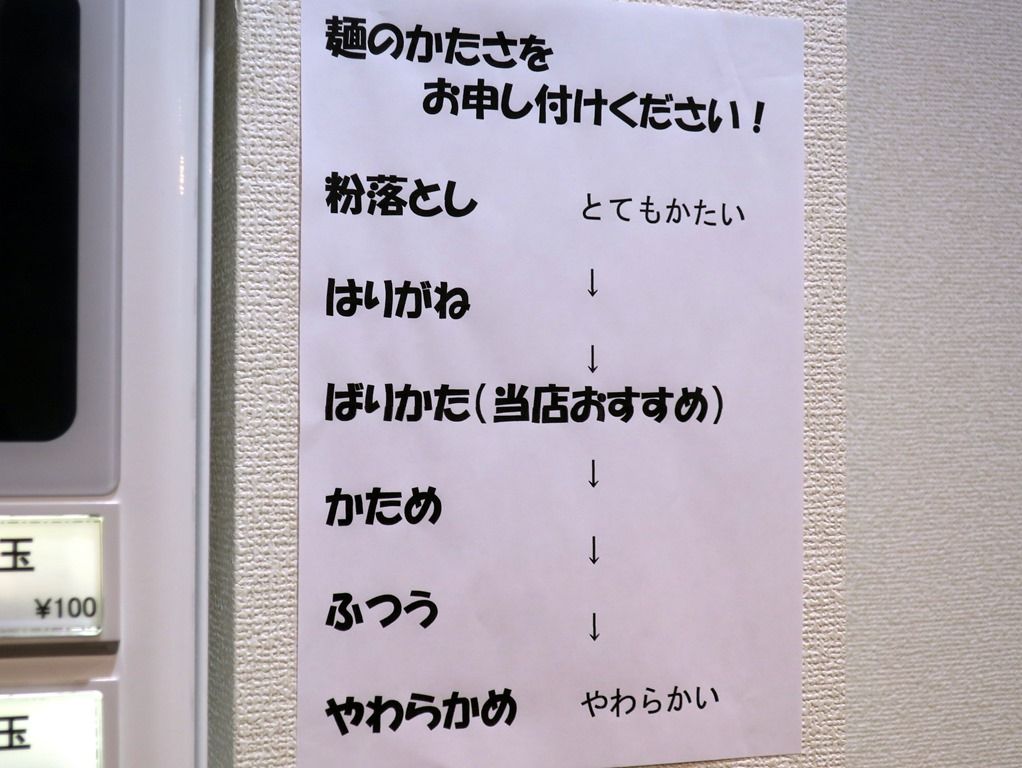 麺のかたさを
お申し付けください！
粉落とし とてもかたい
↓
はりがね
↓
ばりかた（当店おすすめ）
↓
かため
↓
ふつう
↓
やわらかめ やわらかい
玉
¥100
玉